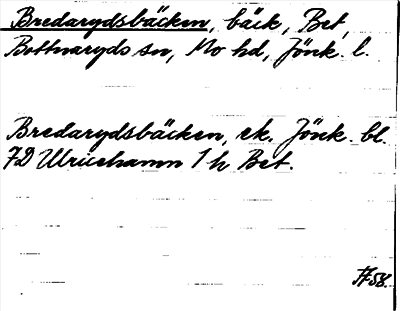 Bredarydsbäcken, bäck, Bet,
Bottnaryds sn, Mo hd, Jönk. l.
Bredarydsbäcken, ek. Jönk. bl.
7D Ulricehamn 1 h Bet.